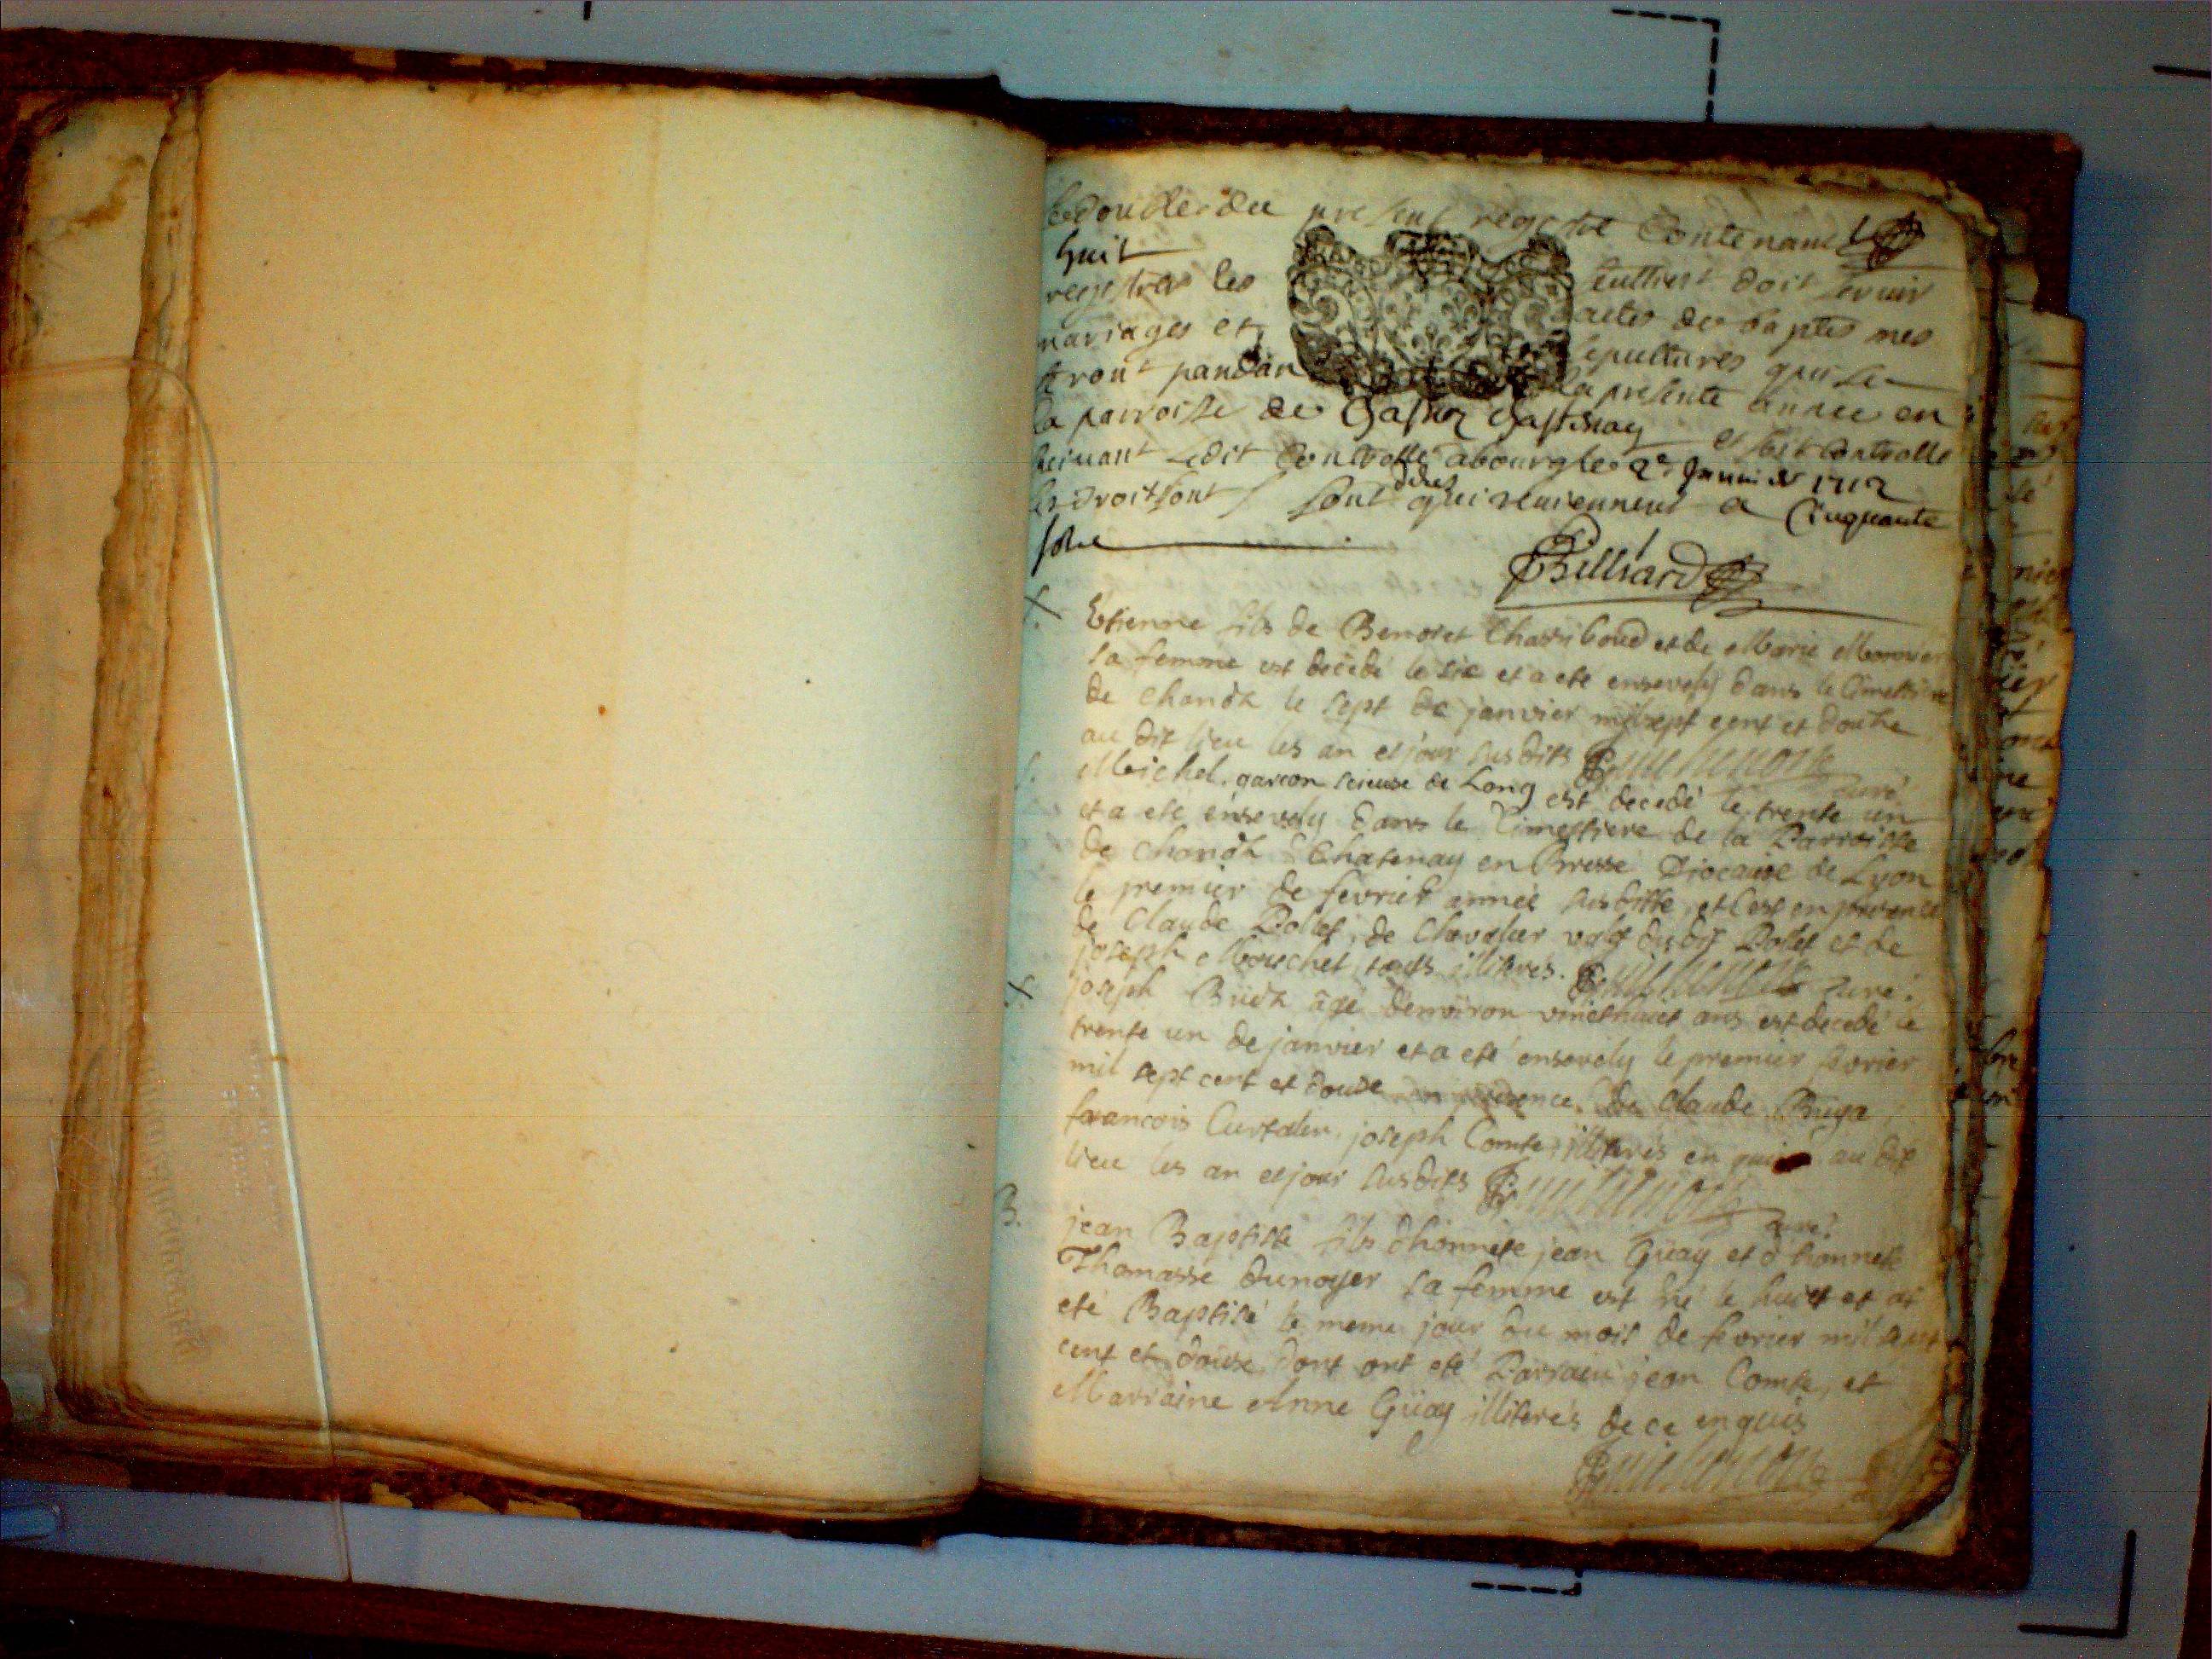 Le double du present registre Contenant
huit feulliest doit servir
registrer les actes de baptes mes
mariages et sepultures qui se
feront pandan la presente année en
la parroisse de et soit controlle
ledit Controlle abourg le 2e Janvier 1712
les droit sont deues qui reviennent a Cinquante
solz
Billiard
S. Etienne fils de Benoiet et de Marie
sa femme est decedé le six et a eté ensevely dans le Cimettiere
de le sept de janvier mil sept cent et douze
au dit lieu les an et jour susdits curé
S. Michel garcon scieuse de Long est decedé le trente un
et a eté ensevely dans le Cimestiere de la Parroisse
de Chatenay en Bresse Diocaise de Lyon
le premier de fevrier année susditte, et c'est en presence
de Claude Pollet, de Chevalier valet dudit Pollet et de
joseph Mouchet touts illiterés. curé.
S. joseph âgé denviron vincthuict ans est decedé le
trente un de janvier et a eté ensevely le premier fevrier
mil sept cent et douze en presence de Claude
francois joseph Comte illiterés en quis au dit
lieu les an et jour susdits curé.
B. jean Baptiste fils d'honnete jean Guay et d'honnete
Thomasse dunoyer sa femme est né le huict et at
eté Baptisé le meme jour du mois de fevrier mil sept
cent et douse dont ont eté Parrain jean Comte, et
Marraine Anne Guay illiterés de ce enquis